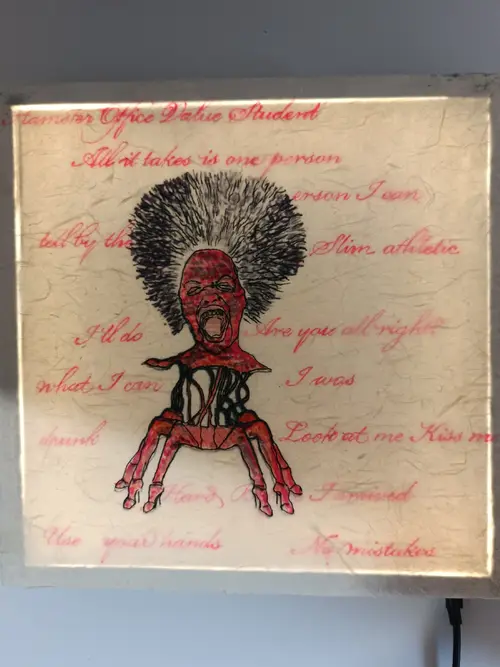 Office Value Student
All it takes is one person
erson I can
tell by the Slim athletic
I'll do Are you all right?
what I can I was
drunk Look at me Kiss m
Hard I missed
Use your hands No mistakes